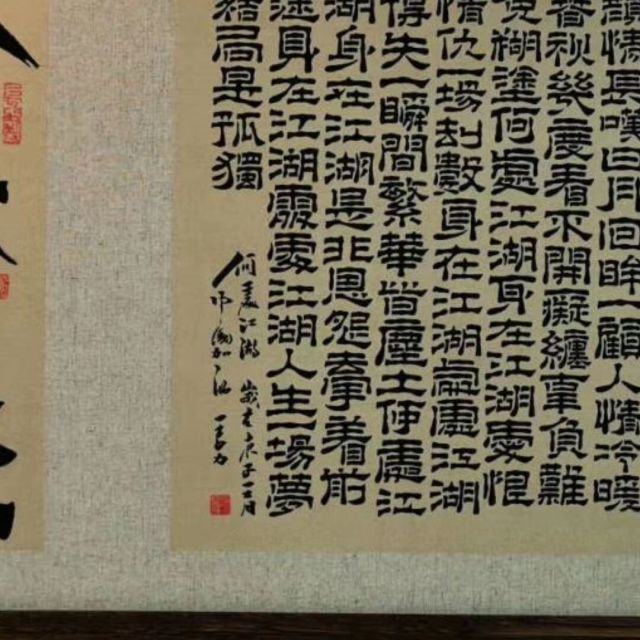 情長嘆日月回眸一顧人情冷暖
春秋幾度看不開癡纏事負難
糊塗何處江湖身在江湖愛恨
情仇一場劫數身在江湖處處江湖
得失一瞬間繁華皆塵土何處江
湖身在江湖是非恩怨牽着前
途身在江湖處處江湖人生一場夢
結局是孤獨
何處江湖 歲在庚子